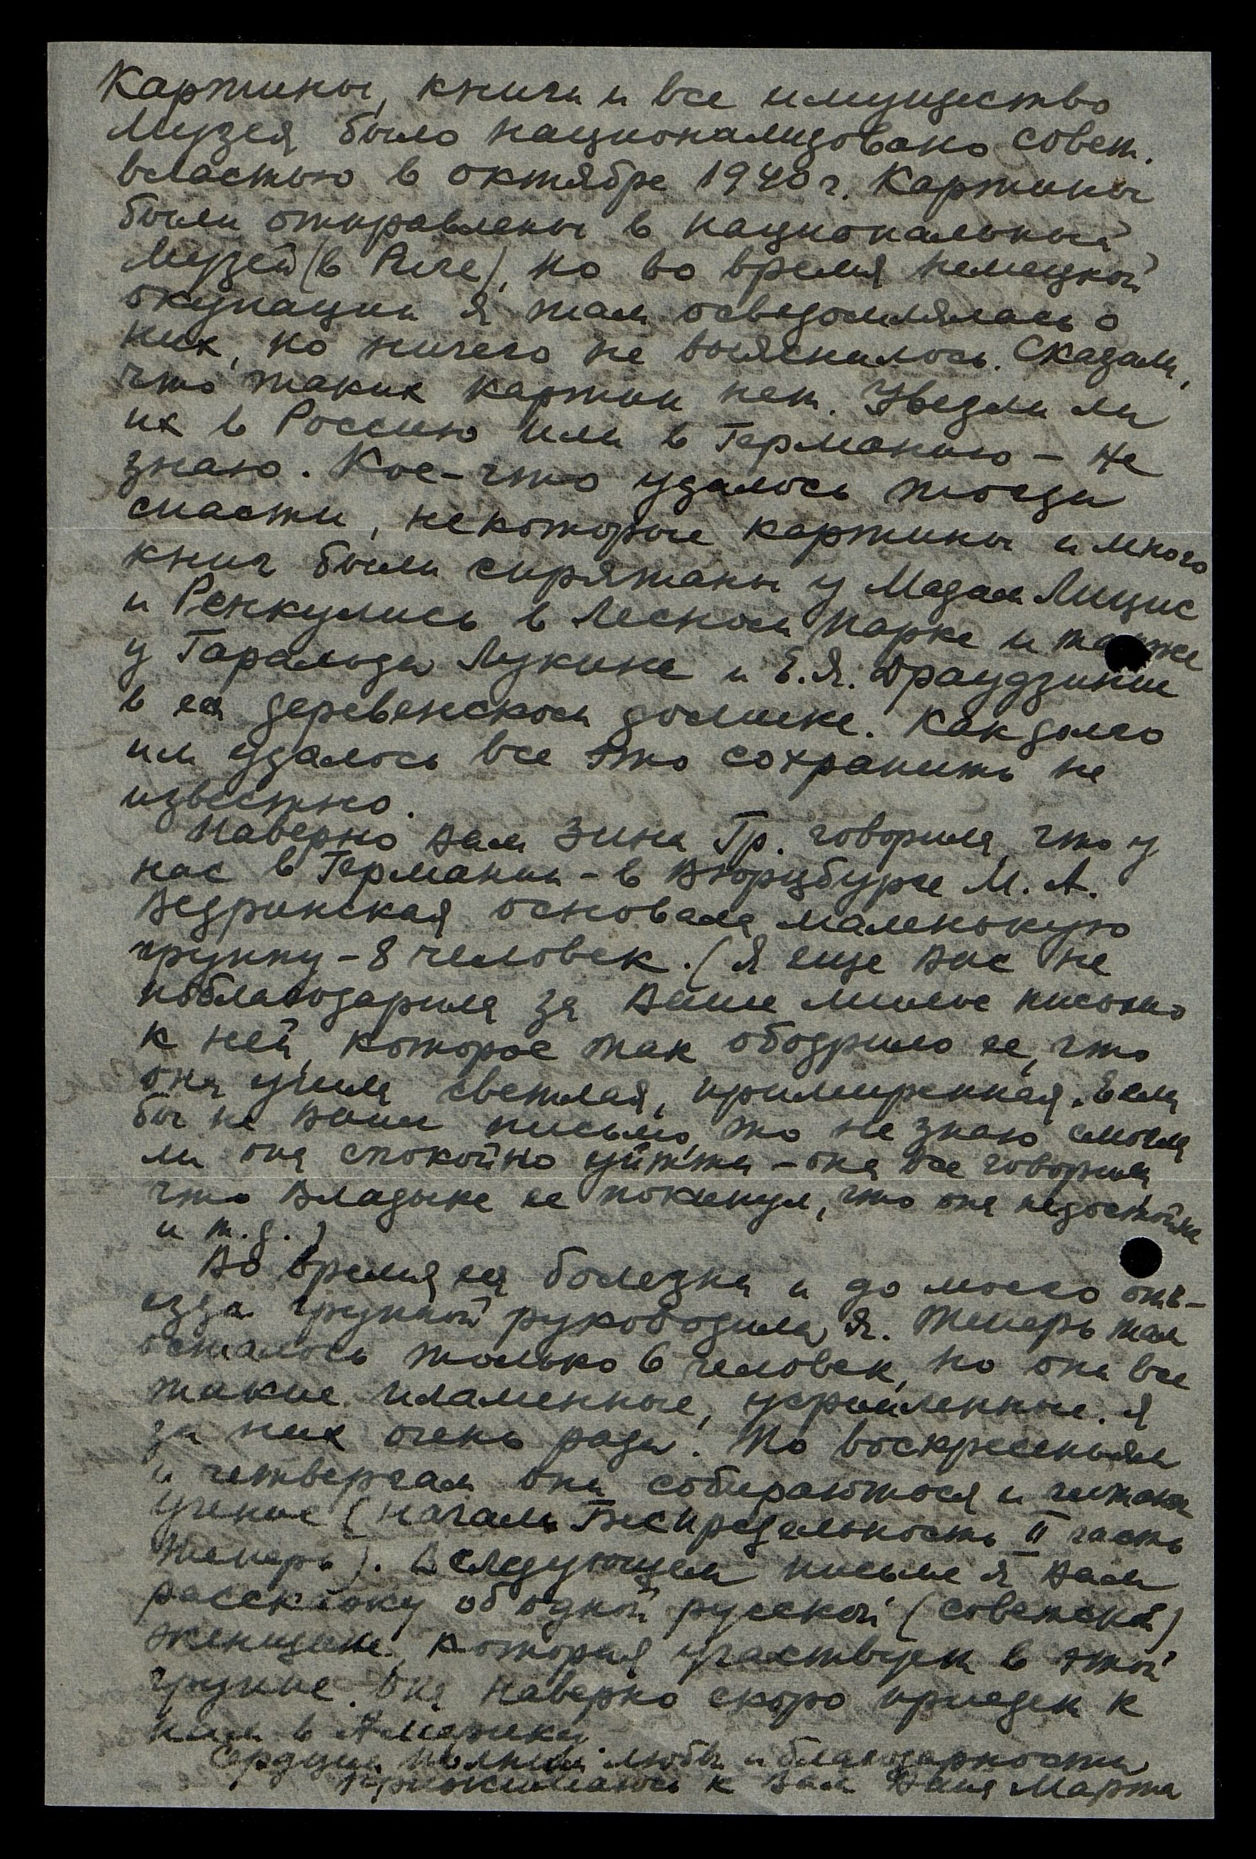 Картины, книги и все имущество
Музея было национализовано совет.
властью в октябре 1940 г. Картины
были отправлены в национальный
Музей (в Риге), но во время немецкой
окупации я там осведомлялась о
них, но ничего не выяснилось. Сказали,
что таких картин нет. Увезли ли
их в Россию или в Германию – не
знаю. Кое-что удалось тогда
спасти, некоторые картины и много
книг были спрятаны у Мадам Лицис
и Ренкулись в Лесном Парке и также
у Гаральда Лукине и Е.Я. Драудзинь
в ея деревенском домике. Как долго
им удалось все это сохранить не
известно.
Наверно Вам Зина Гр. говорила, что у
нас в Германии – в Вюрцбурге М. А.
Ведринская основала маленькую
группу – 8 человек. (Я еще Вас не
поблагодарила за Ваше милое письмо
к ней, которое так ободрило ее, что
она ушла светлая, примиренная. Если
бы не Ваши письмо, то не знаю смогла
ли она спокойно уйтти – она все говорила,
что Владыка ее покинул, что она недостойна
и т. д.)
Во время ея болезни и до моего отъ-
езда группой руководила я. Теперь там
осталось только 6 человек, но они все
такие пламенные, устремленные. Я
за них очень рада. По воскресеньям
и четвергам они собираются и читают
учение (начали Беспредельность II часть
теперь). В следующем письме я Вам
расскажу об одной русской (советской)
женщине, которая участвует в этой
группе. Она наверно скоро приедет к
нам в Америку.
Сердцем полным любви и благодарности
прижимаюсь к Вам Ваша Марта